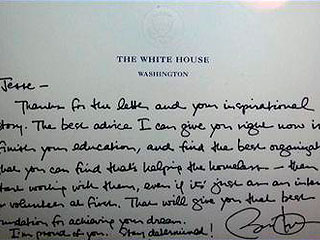 THE WHITE HOUSE
WASHINGTON
Jesse —
Thanks for the letter and your inspirational
story. The best advice I can give you right now is
finish your education, and find the best organizat
that you can find that's helping the homeless — then
start working with them, even if it's just as an inter
or volunteer at first. That will give you that best
foundation for achieving your dream.
I'm proud of you. Stay determined!